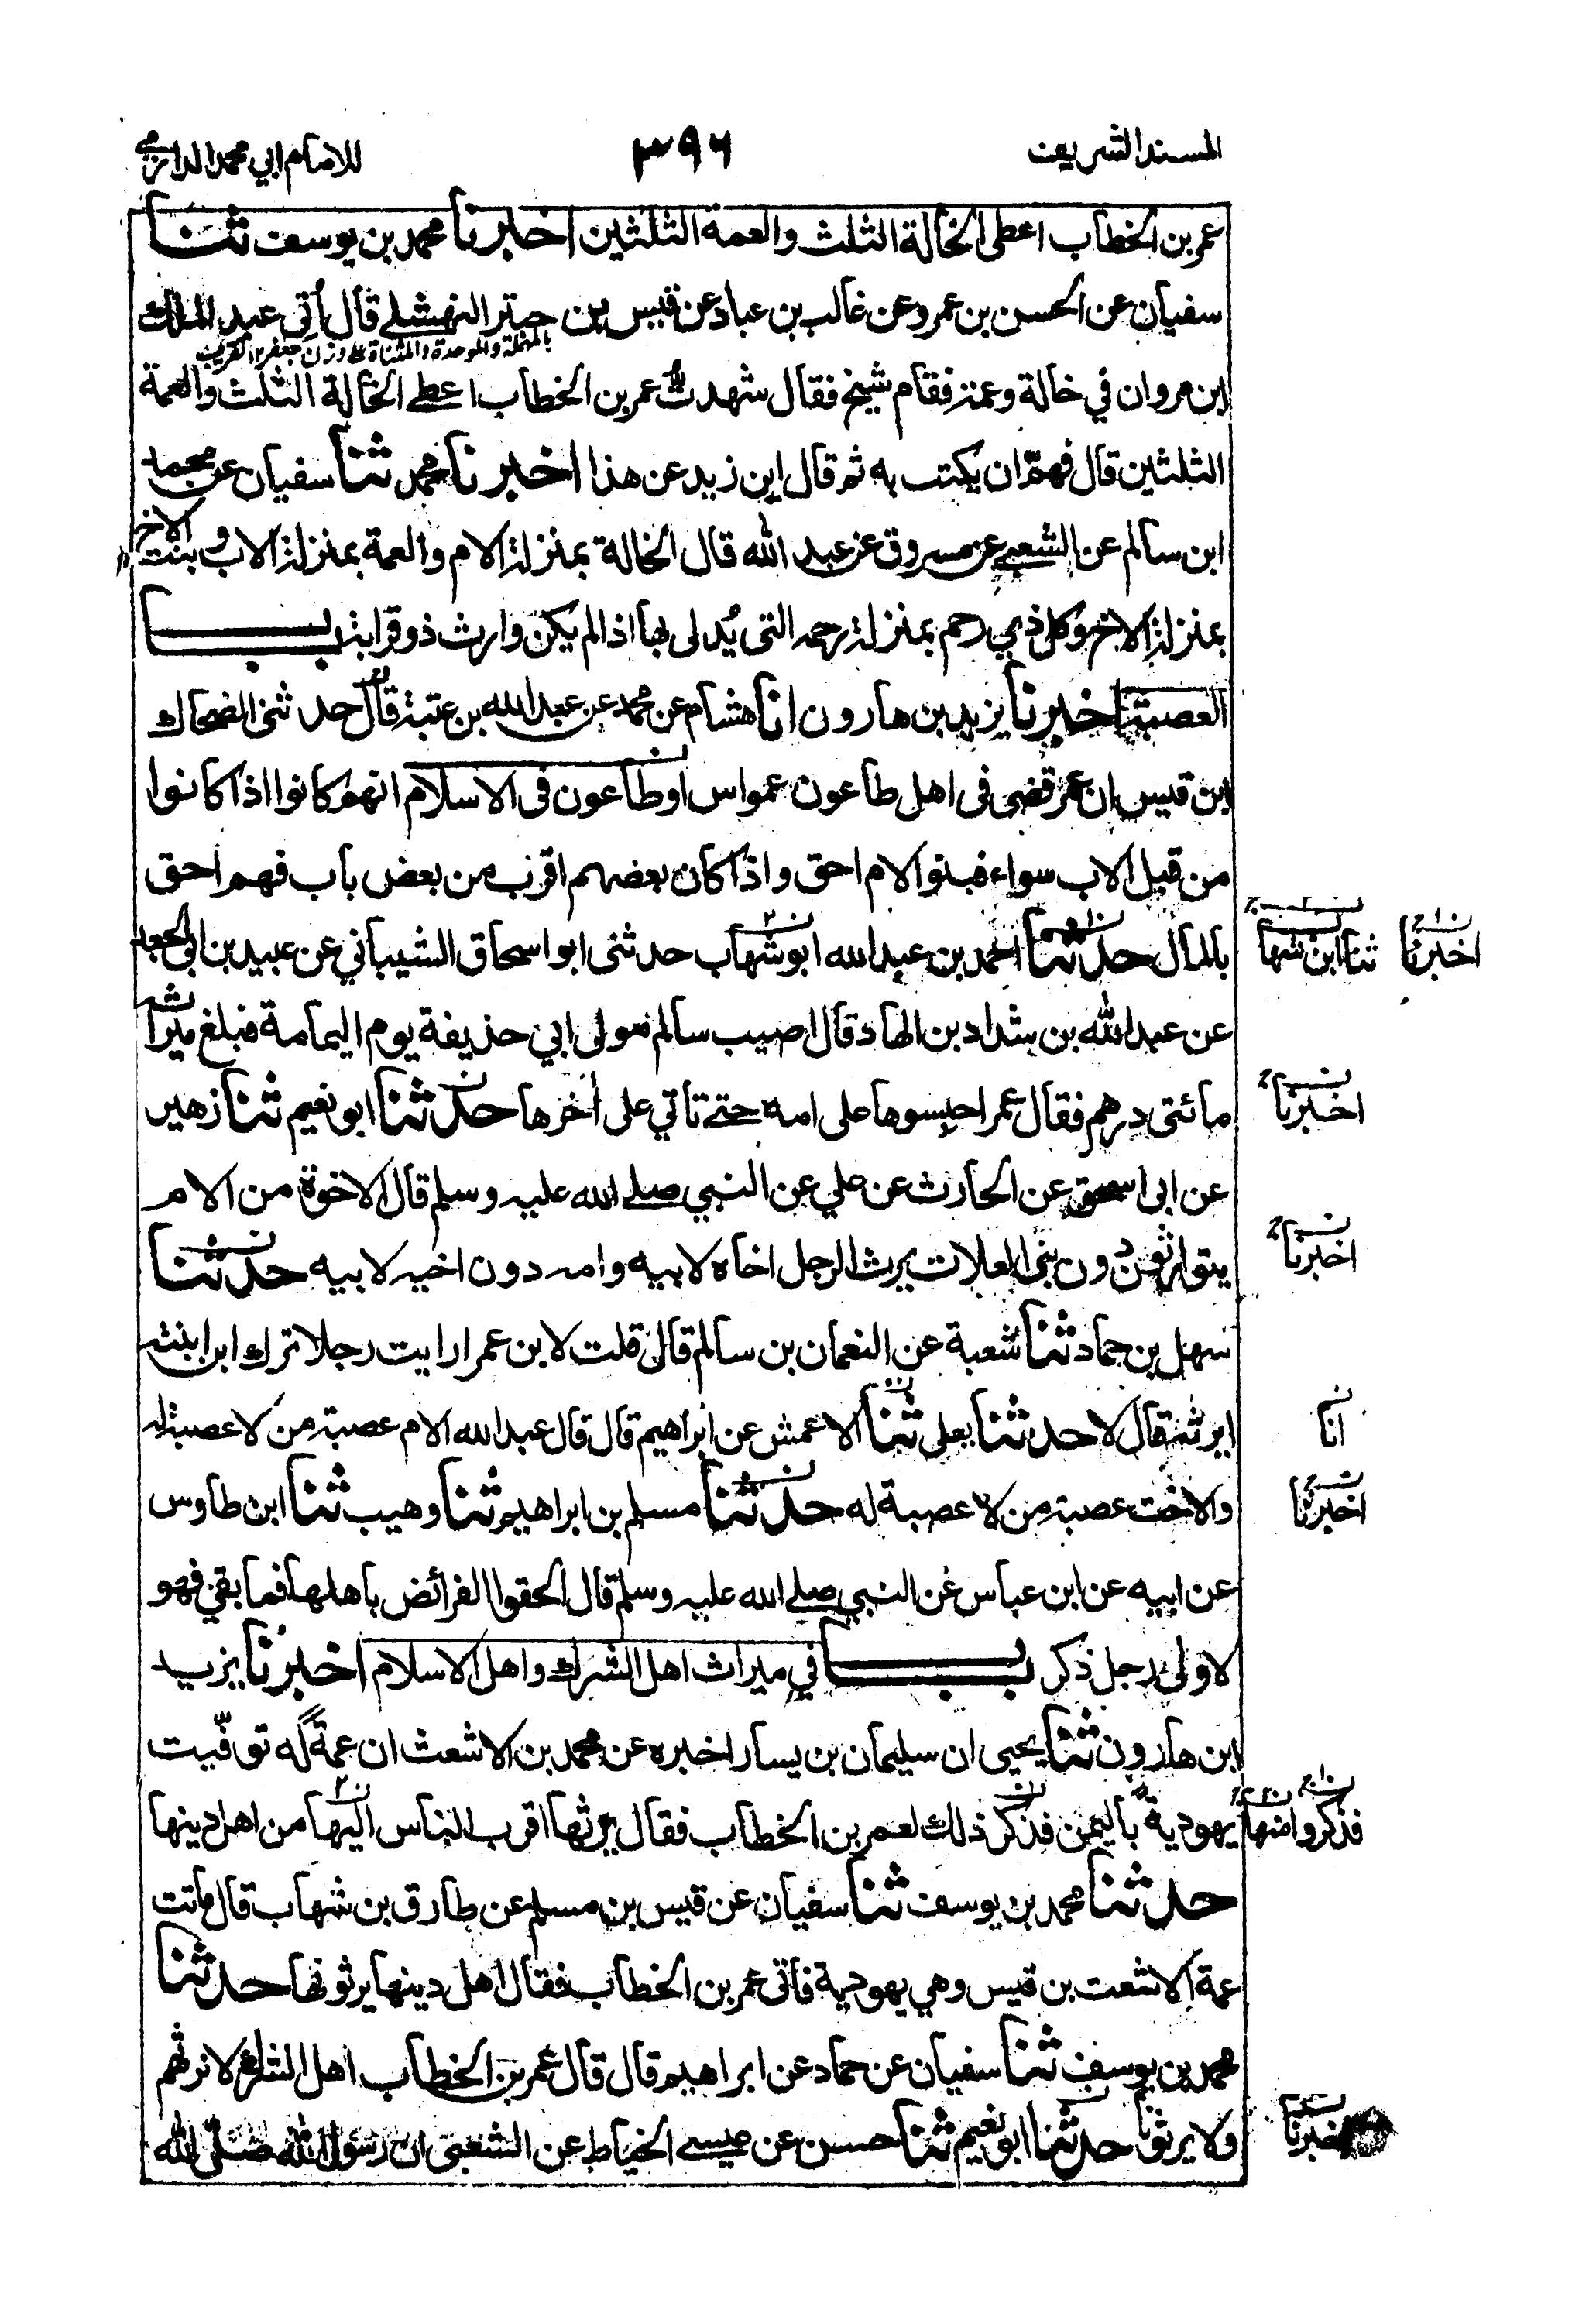 المسند الشريف ٣٩٦ للامام ابي محمد الدارمي
عمر بن الخطاب اعطى الخالة الثلث والعمة الثلثين اخبرنا محمد بن يوسف ثنا
سفيان عن الحسن بن عمرو عن غالب بن عباد عن قيس بن حبتر النهشلي قال أتي عبد الملك
بالمهملة والموحدة والمثناة على وزن جعفر ١٢ تقريب
ابن مروان في خالة وعمة فقام شيخ فقال شهدت عمر بن الخطاب اعطى الخالة الثلث والعمة
الثلثين قال فهمّ ان يكتب به ثم قال اين زيد عن هذا اخبرنا محمد ثنا سفيان عن محمد
ابن سالم عن الشعبي عن مسروق عن عبد الله قال الخالة بمنزلة الام والعمة بمنزلة الاب وبنت الاخ
بمنزلة الاخ وكل ذي رحم بمنزلة رحمه التى يُدلى بها اذا لم يكن وارث ذو قرابة باب
العصبة اخبرنا يزيد بن هارون انا هشام عن محمد عن عبد الله بن عتبة قال حدثني الضحاك
ابن قيس ان عمر قضى فى اهل طاعون عمواس اوطاعون فى الاسلام انهم كانوا اذا كانوا
من قبل الاب سواء فبنو الام احق واذا كان بعضهم اقرب من بعض باب فهم احق
بالمال حدثنا احمد بن عبد الله ابو شهاب حدثنى ابو اسحاق الشيباني عن عبيد بن ابى الجعد
ثنا ابن شهاب
اخبرنا
عن عبد الله بن شداد بن الهاد قال اصيب سالم مولى ابي حذيفة يوم اليمامة فبلغ ميراثه
مائتى درهم فقال عمر احبسوها على امه حتى تاتي على أخرها حدثنا ابو نعيم ثنا زهير
اخبرنا
عن ابى اسحق عن الحارث عن علي عن النبي صلى الله عليه وسلم قال الاخوة من الام
يتوارثون دون بنى العلات يرث الرجل اخاه لابيه وامه دون اخيه لابيه حدثنا
اخبرنا
سهل بن حماد ثنا شعبة عن النعمان بن سالم قال قلت لابن عمر ارايت رجلا ترك ابن ابنته
ايرثه قال لا حدثنا يعلى ثنا الاعمش عن ابراهيم قال قال عبد الله الام عصبة من لا عصبة له
انا
والاخت عصبة من لا عصبة له حدثنا مسلم بن ابراهيم ثنا وهيب ثنا ابن طاوس
اخبرنا
عن ابيه عن ابن عباس عن النبي صلى الله عليه وسلم قال الحقوا الفرائض باهلها فما بقي فهو
لاولى رجل ذكر باب في ميراث اهل الشرك واهل الاسلام اخبرنا يزيد
ابن هارون ثنا يحيى ان سليمان بن يسار اخبره عن محمد بن الاشعث ان عمةً له توفّيت
يهودية باليمن فذكر ذلك لعمر بن الخطاب فقال يرثها اقرب الناس اليها من اهل دينها
فذكروا منها
حدثنا محمد بن يوسف ثنا سفيان عن قيس بن مسلم عن طارق بن شهاب قال ماتت
عمة الاشعت بن قيس وهي يهودية فأتى عمر بن الخطاب فقال اهل دينها يرثونها حدثنا
محمد بن يوسف ثنا سفيان عن حماد عن ابراهيم قال قال عمر بن الخطاب اهل الشرك لا نرثهم
ولا يرثونا حدثنا ابو نعيم ثنا حسن عن عيسى الخياط عن الشعبى ان رسول الله صلّى الله
اخبرنا